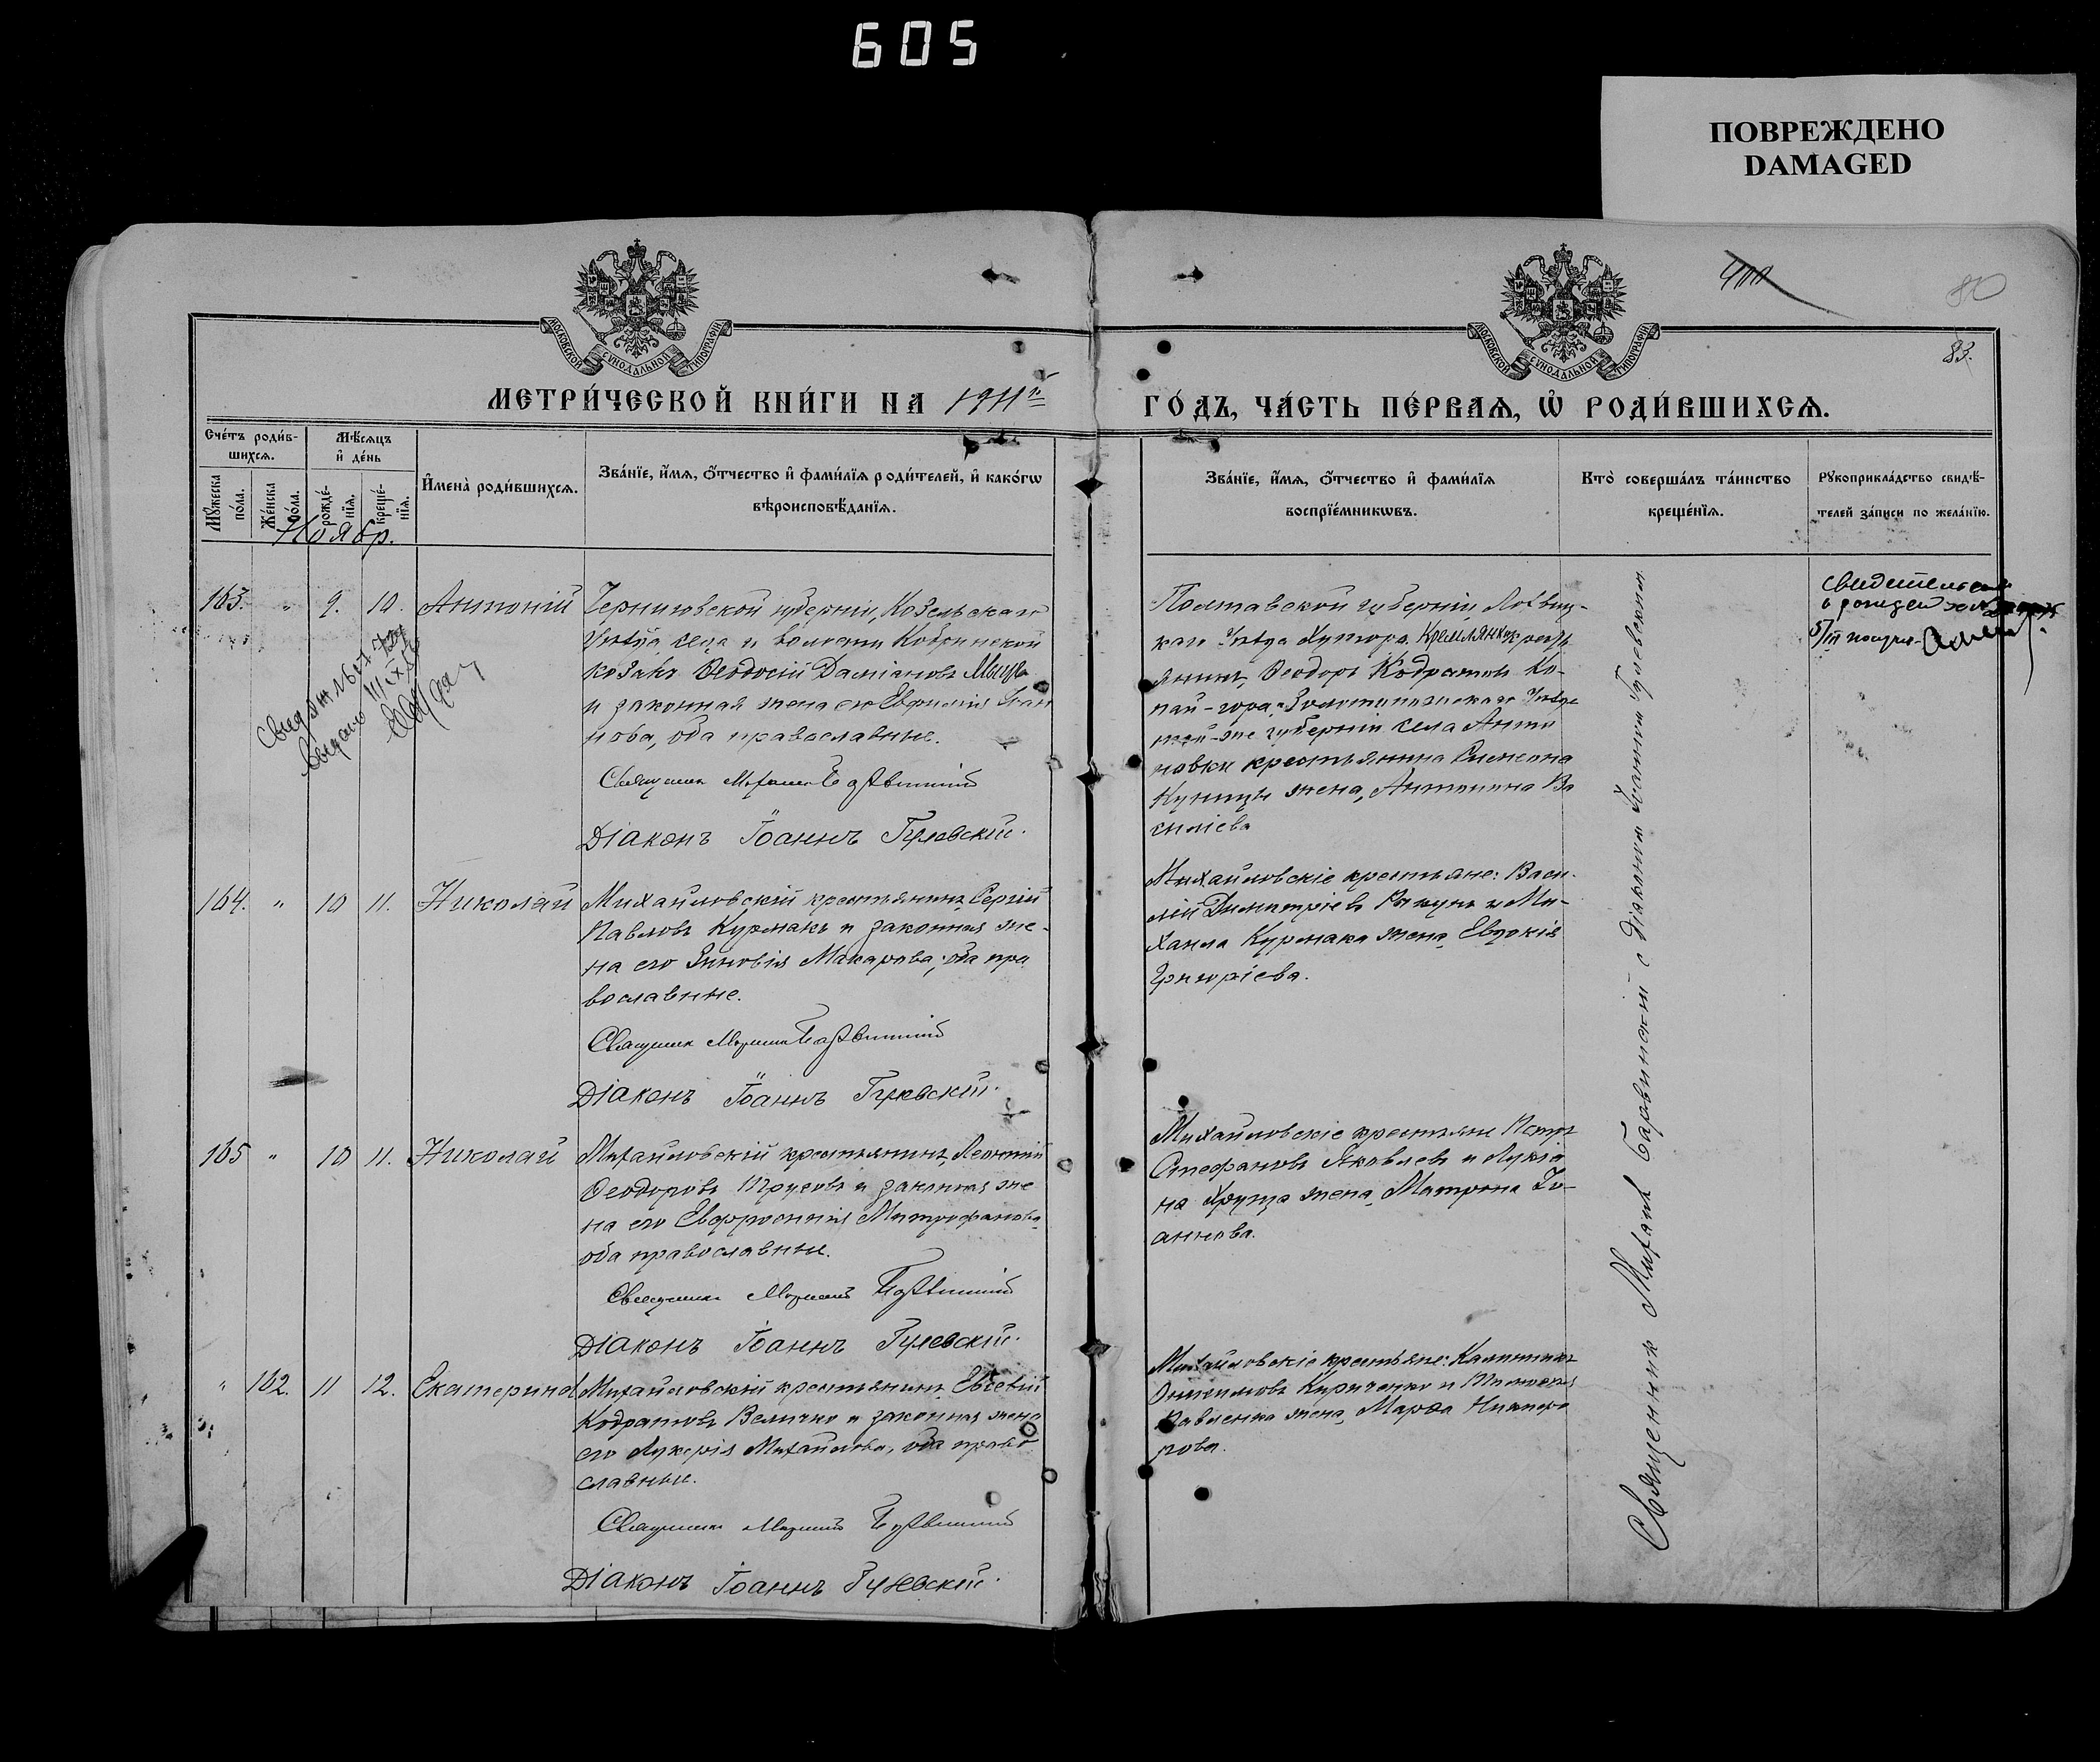 605
ПОВРЕЖДЕНО
DAMAGED
400
80
83.
МОСКОВСКОЙ СѴНОДАЛЬНОЙ ТИПОГРАФІИ
МОСКОВСКОЙ СѴНОДАЛЬНОЙ ТИПОГРАФІИ
МЕТРИ́ЧЕСКОЙ КНИ́ГИ НА 1911й
ГО́ДЪ, ЧА́СТЬ ПЕ́РВАѦ, Ѡ҆ РОДИ́ВШИХСѦ.
Сче́тъ роди́в-
шихсѧ.
Мꙋ́жеска
по́ла.
Же́нска
по́ла.
Мѣ́сѧцъ
и҆ де́нь
рожде́-
нїѧ.
креще́-
нїѧ.
И҆мена̀ роди́вшихсѧ.
Зва́нїе, и҆́мѧ, ѻ҆́тчество и҆ фами́лїѧ роди́телей, и҆ како́гѡ
вѣроисповѣ́данїѧ.
Зва́нїе, и҆́мѧ, ѻ҆́тчество и҆ фами́лїѧ
воспрїе́мникѡвъ.
Кто̀ соверша́лъ та́инство
креще́нїѧ.
Рꙋкоприкла́дство свидѣ́-
телей за́писи по жела́нїю.
Ноябр.
163. " 9. 10. Антоній
Черниговской губерніи, Козельскаго
уѣзда, села и волости Кобринской
козакъ Ѳеодосій Даміановъ
и законная жена его Евфимія Іоан
нова, оба православные.
Священник Михаилъ Барвинскій
Діаконъ Іоаннъ Гулевскій.
Полтавской губерніи, Лохвиц-
каго уѣзда Хутора кресть
янинъ, Ѳеодоръ Кодратовъ Ко-
пай-гора, Золотоношскаго уѣзда
той-же губерніи села Анто
новки крестьянина Симеона
Куницы жена, Антонина Ва
силіева
свидетельство
о рожден
5/III получ.
164. " 10 11. Николай
Михайловскій крестьянинъ, Сергій
Павловъ Курмакъ и законная же-
на его Зиновія Макарова, оба пра
вославные.
Священник Михаилъ Барвинскій
Діаконъ Іоаннъ Гулевскій.
Михайловскіе крестьяне: Васи-
лій Димитріевъ и Ми-
хаила Курмака жена, Евдокія
Григоріева.
165 " 10 11. Николай
Михайловскій крестьянинъ, Леонтій
Ѳеодоровъ Трусовъ и законная же
на его Евфросинія Митрофанова,
оба православные.
Священник Михаилъ Барвинскій
Діаконъ Іоаннъ Гулевскій.
Михайловскіе крестьяне Петръ
Стефановъ Яковлевъ и Лукіа
на Хруща жена, Матрона Іо-
аннова.
" 102. 11 12. Екатерина
Михайловскій крестьянинъ, Евсевій
Кодратовъ Величко и законная жена
его Лукерія Михайлова, оба право
славные.
Священник Михаилъ Барвинскій
Діаконъ Іоаннъ Гулевскій.
Михайловскіе крестьяне: Калинникъ
Кириченко и Тимоѳея
Павленка жена, Марѳа Никифо
рова.
Священник Михаил Барвинскій с діаконом Іоанном Гулевским